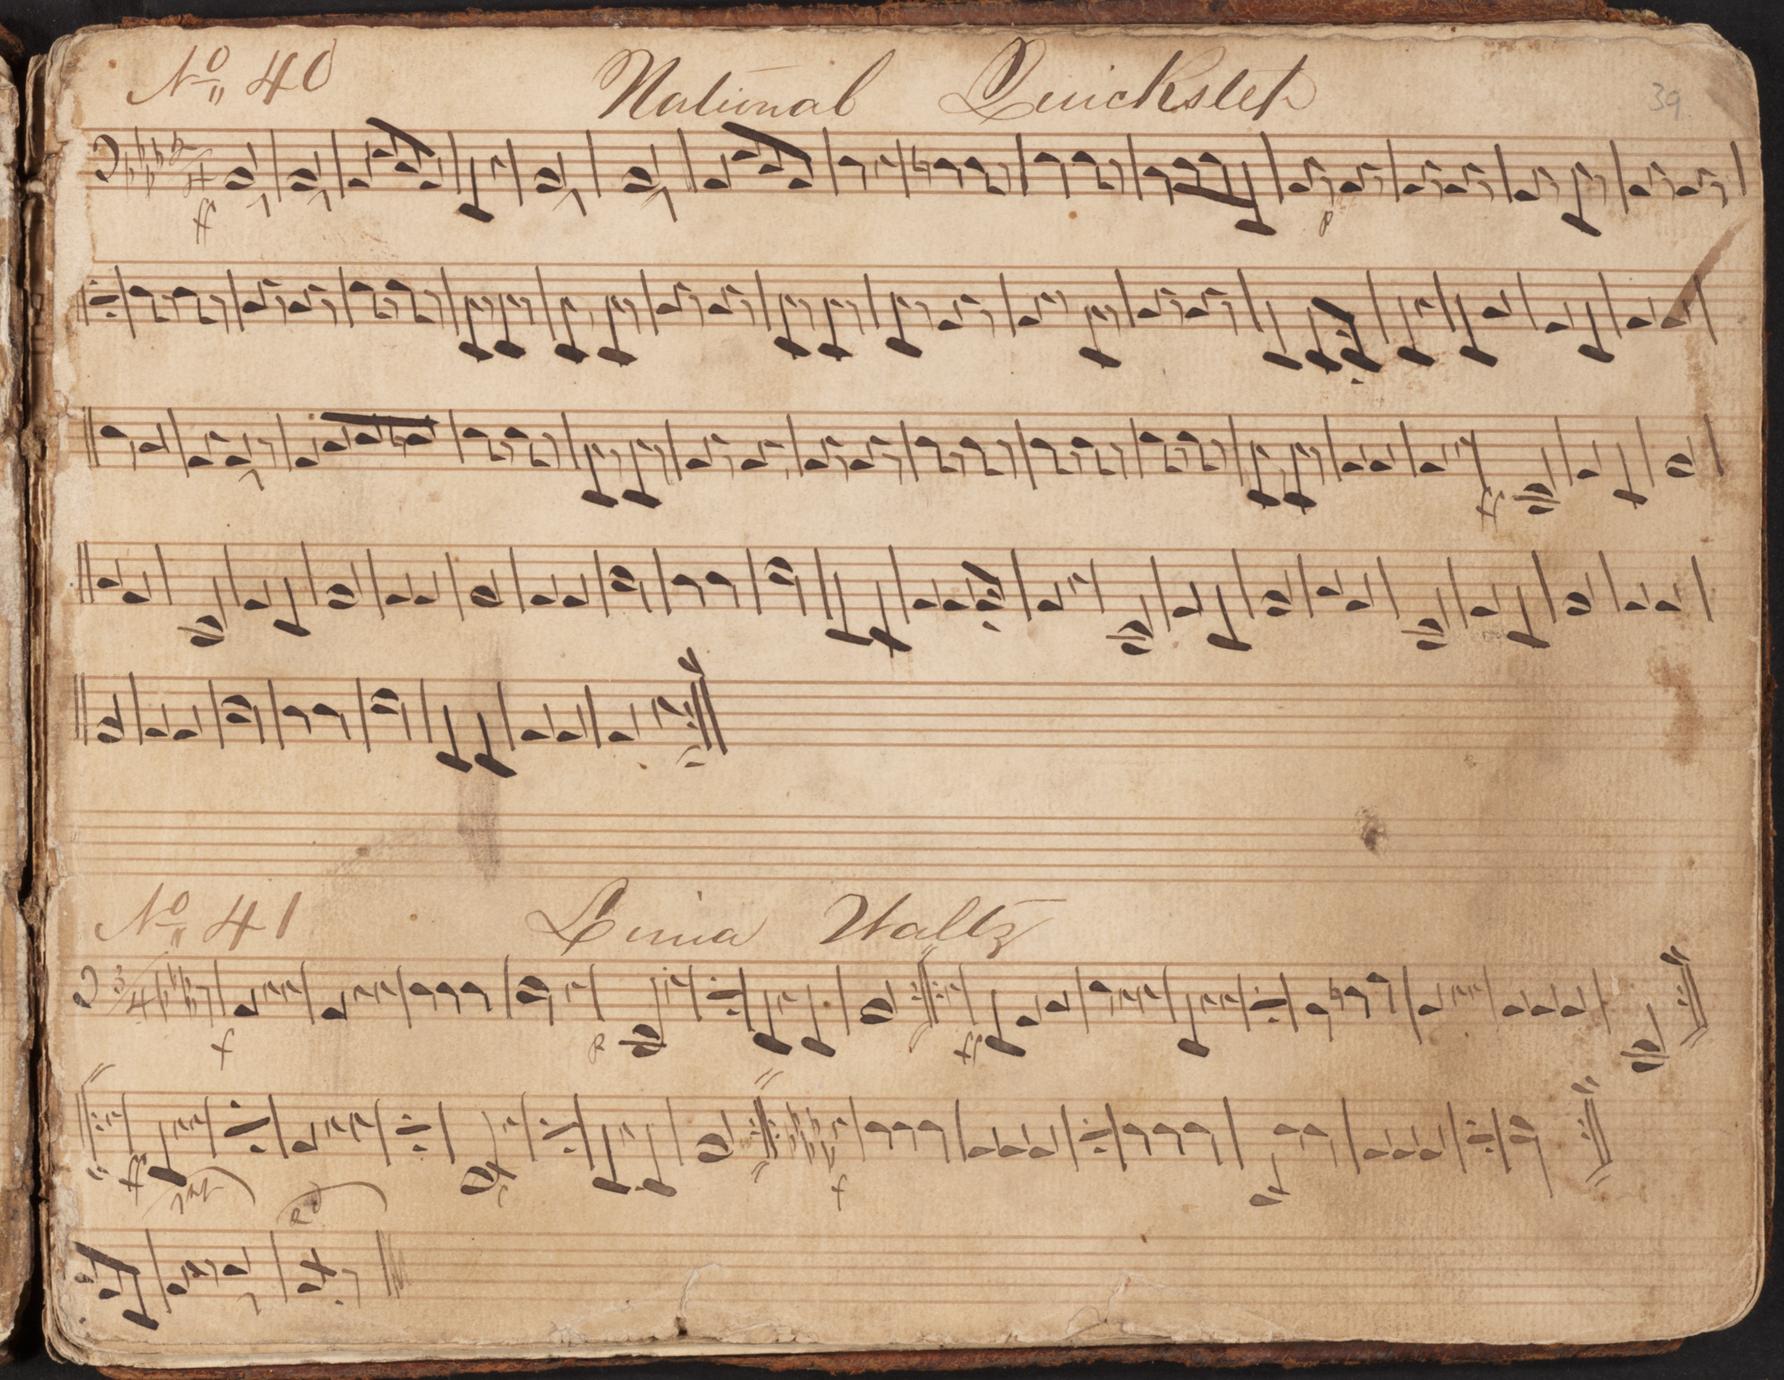 No 40 National Quickstep 39
ff p
ff
No 41 Waltz
3/4
f p ff
ff f
1st 2d